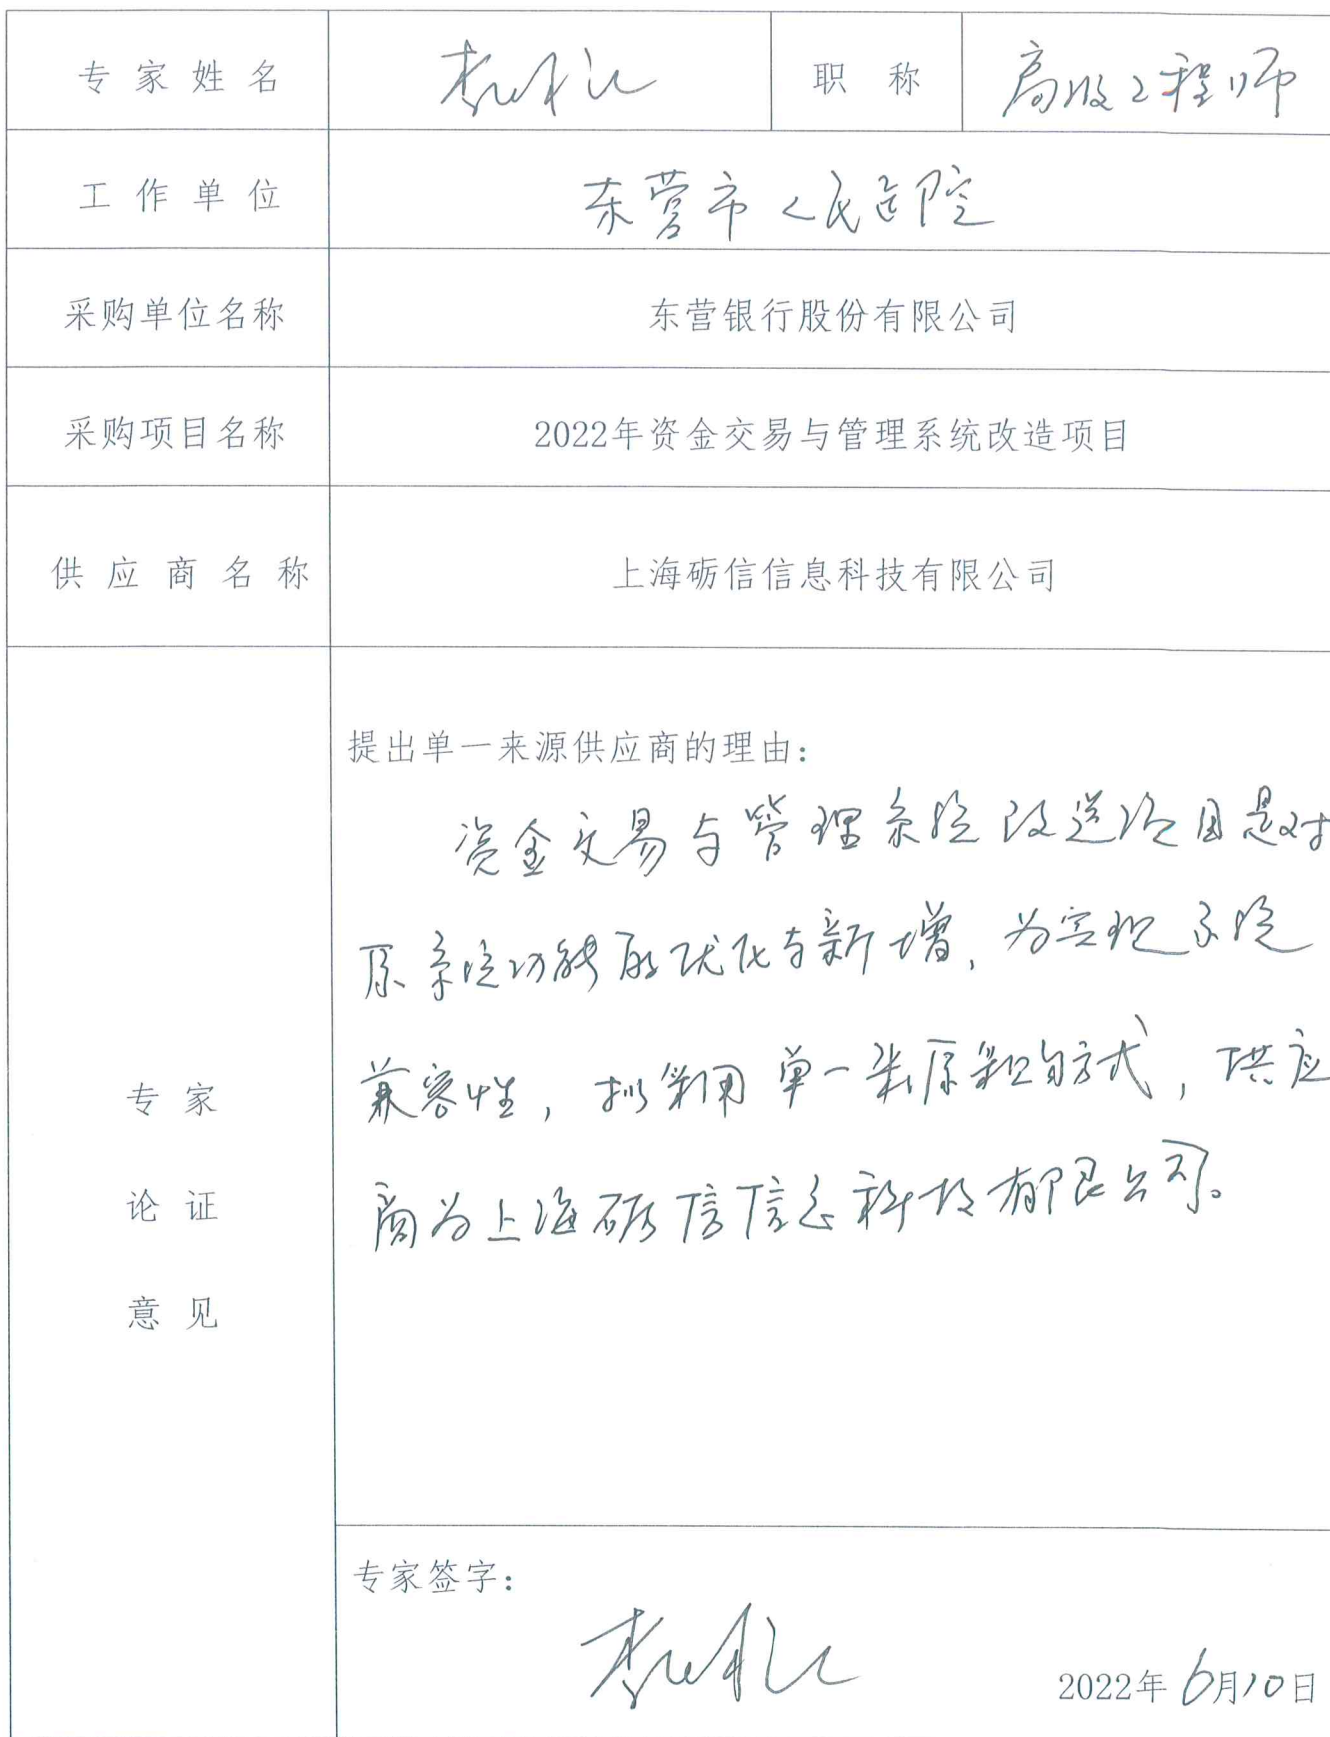 专家姓名 职称 高级工程师
工作单位 东营市人民医院
采购单位名称 东营银行股份有限公司
采购项目名称 2022年资金交易与管理系统改造项目
供应商名称 上海砺信信息科技有限公司
提出单一来源供应商的理由:
资金交易与管理系统改造项目是对
原系统功能的优化与新增,为实现系统
兼容性,拟采用单一来源采购方式,供应
商为上海砺信信息科技有限公司。
专家
论证
意见
专家签字:
2022年6月10日